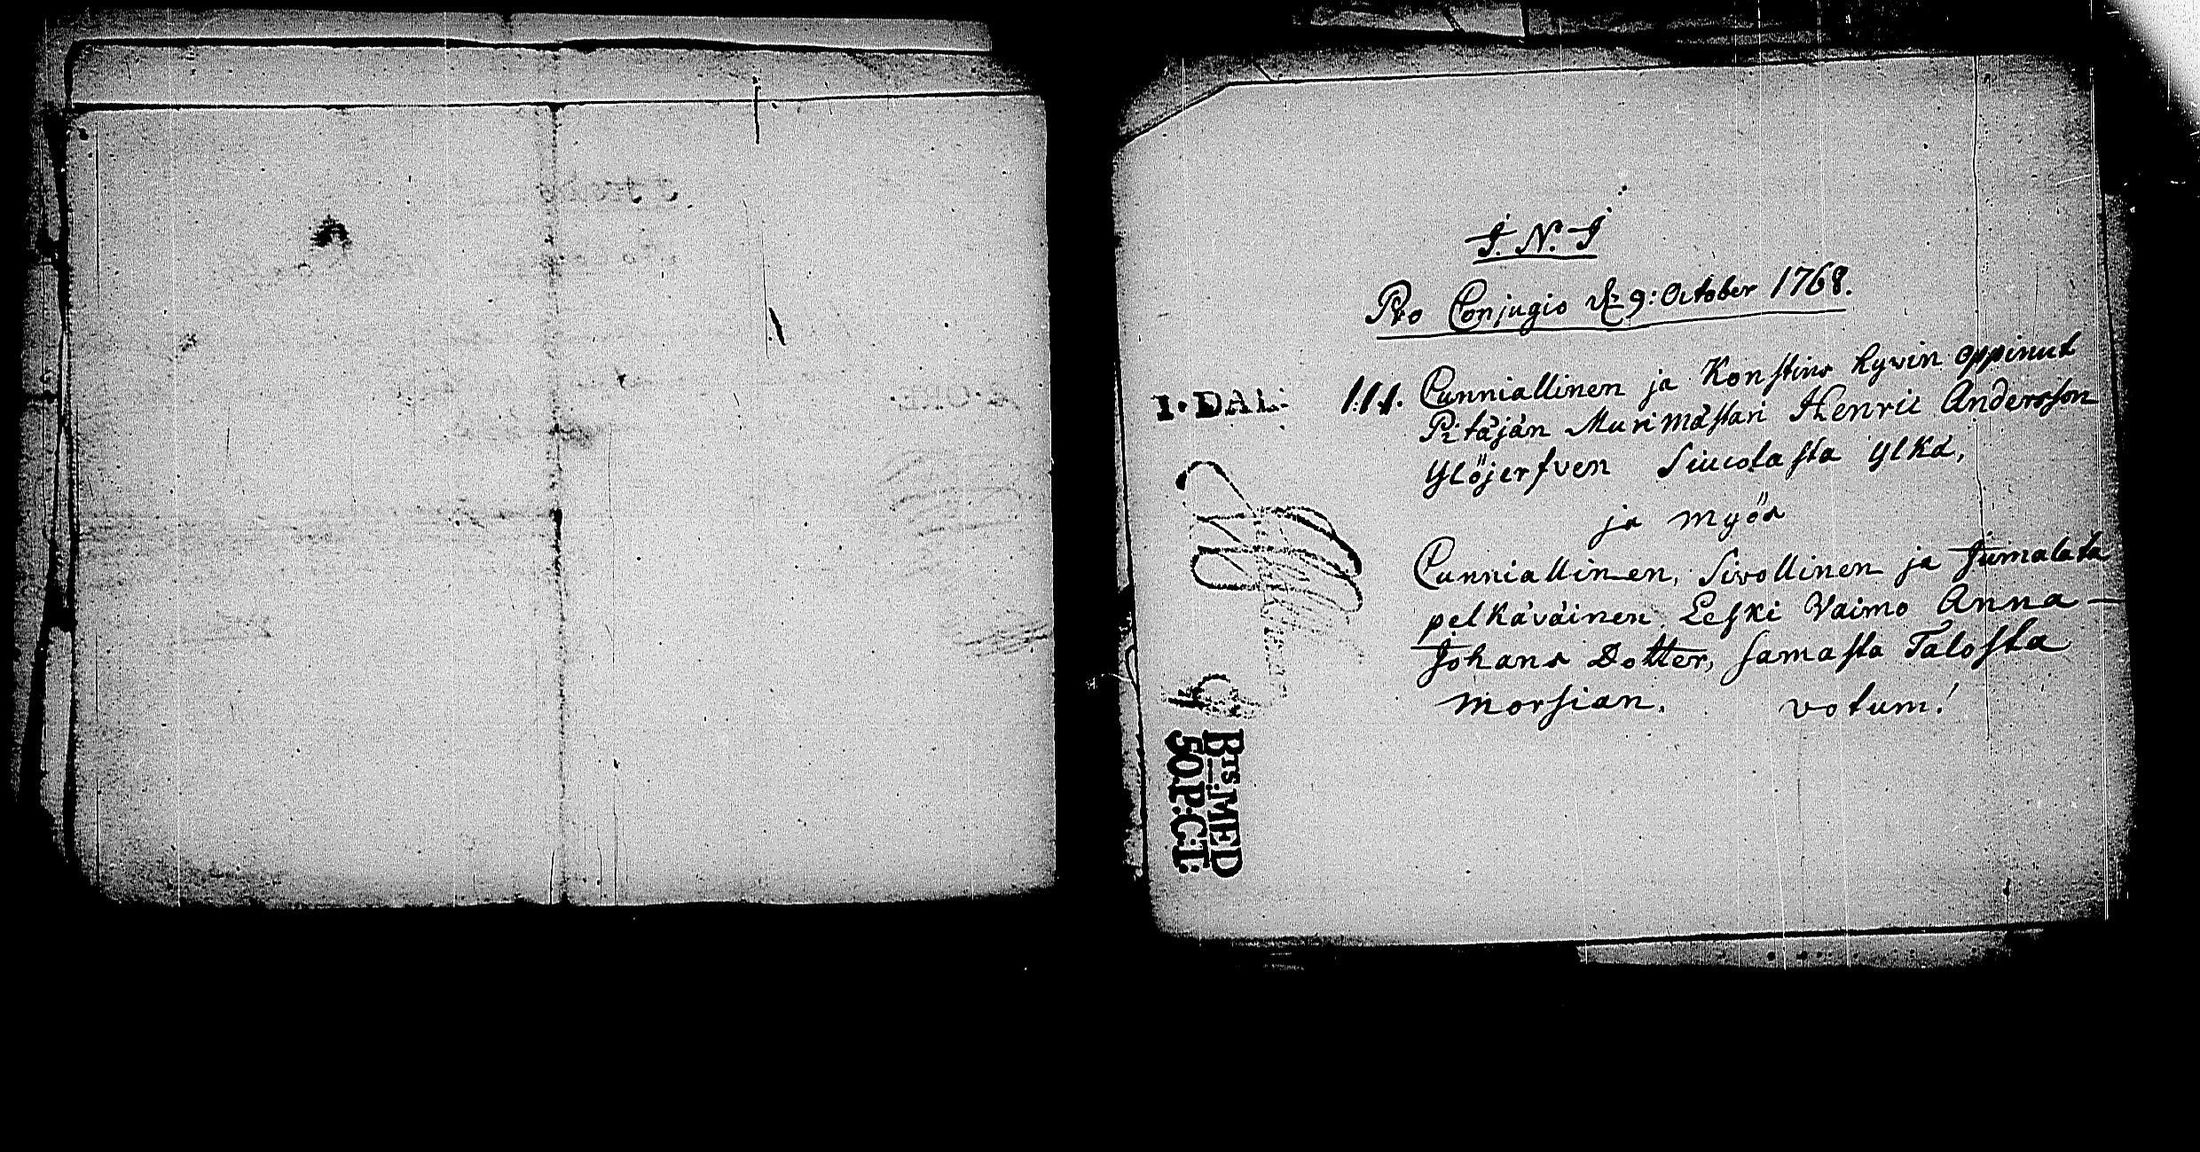 J. N. J
Pro Conjugio d. 9: October 1768.
1. DAL:
1.1.1. Cunniallinen ja Konstins hyvin oppinut
Pitäjän Murimästari Henric Andersson
Ylöjerfven Siucolasta Ylkä,
ja myös
Cunniallinen, Sivollinen ja Jumalata
pelkäväinen Leski Vaimo Anna
Johans Dotter, samasta Talosta
morsian. votum!
BTS. MED
50. P:C:T: